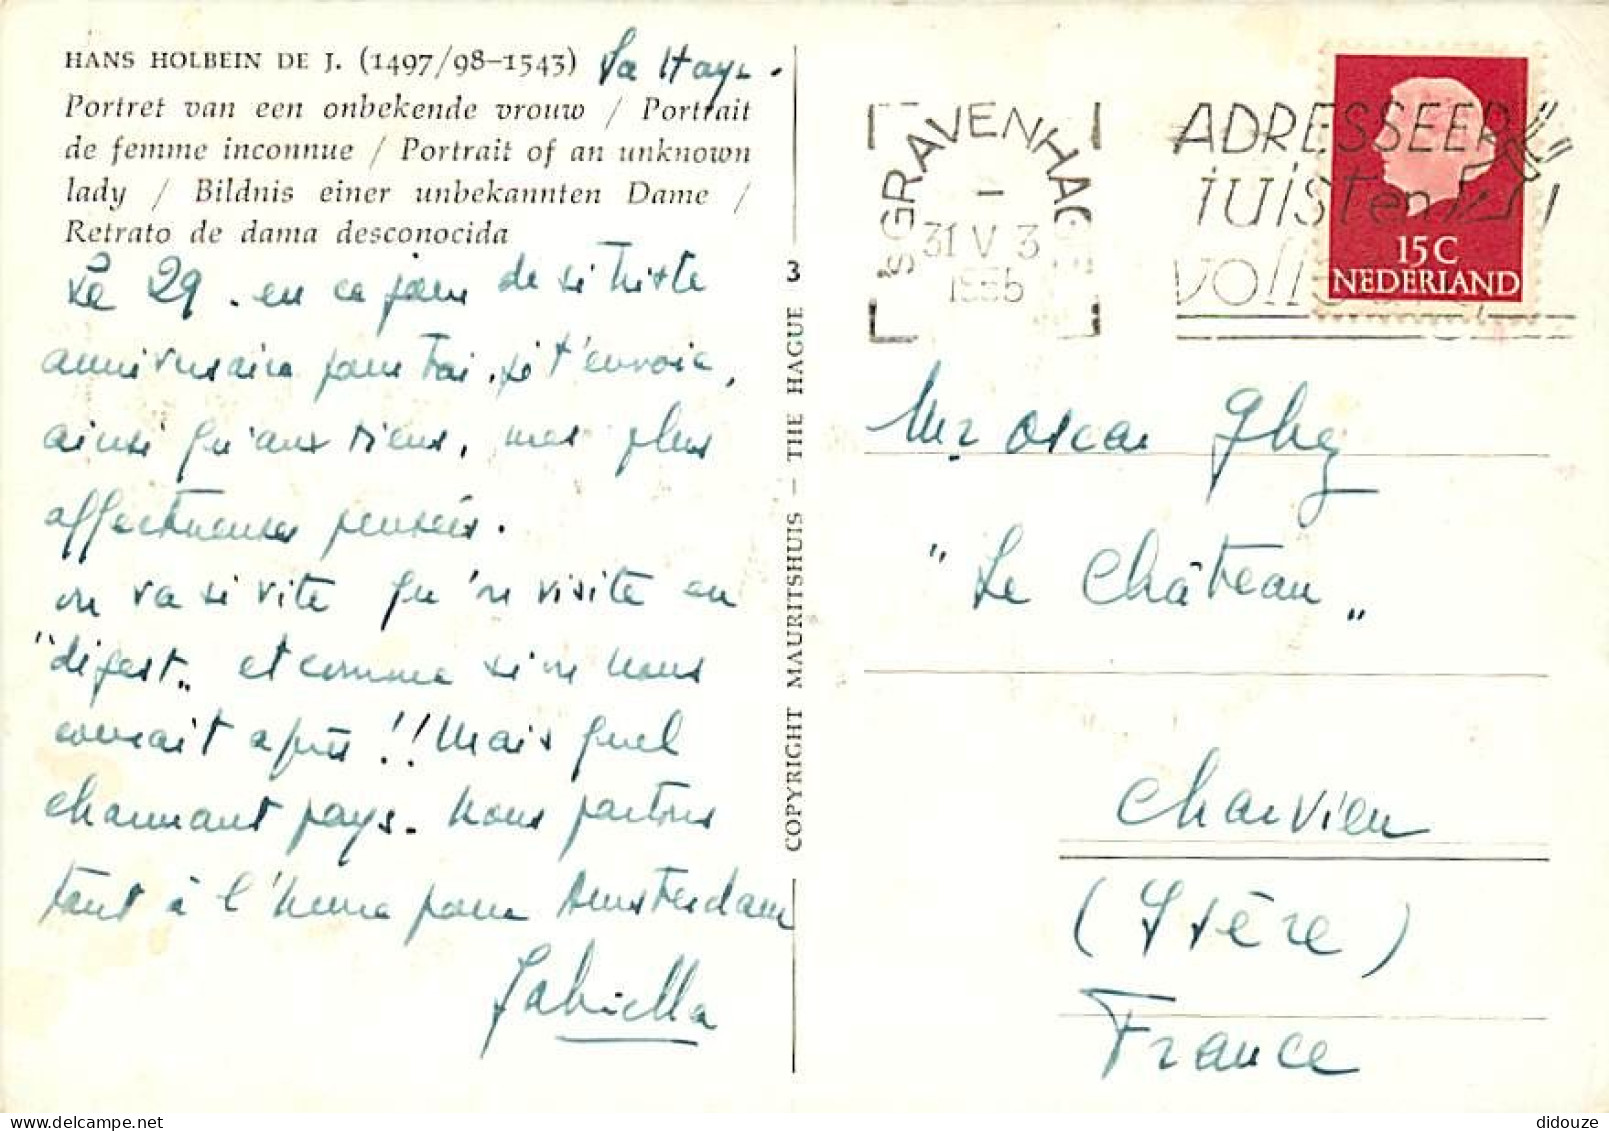 HANS HOLBEIN DE J. (1497/98–1543) La Haye.
Portret van een onbekende vrouw / Portrait
de femme inconnue / Portrait of an unknown
lady / Bildnis einer unbekannten Dame /
Retrato de dama desconocida
Le 29. en ce jour de si triste
anniversaire pour toi, je t'envoie,
ainsi qu'aux tiens, mes plus
affectueuses pensées.
on va si vite qu'on visite en
"digest" et comme si on nous
courait après!! Mais quel
charmant pays. Nous partons
tout à l'heure pour Amsterdam
Gabriella
3
COPYRIGHT MAURITSHUIS – THE HAGUE
'SGRAVENHAGE
31 V 3
ADRESSEER
juist en
15 C
NEDERLAND
Mr Oscar Ghez
"Le Château"
Charvieu
(Isère)
France
didouze